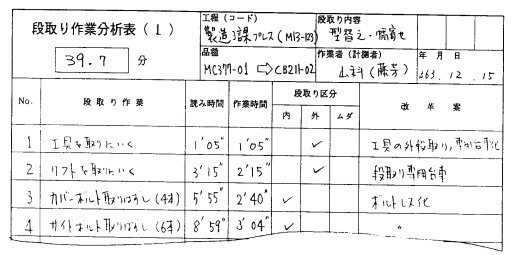 段取り作業分析表(1)
39.7 分
工程(コード)
製造3課プレス(M13-123)
段取り内容
型替え・幅寄せ
品種
MC377-01 ⇨ CB211-02
作業者(計測者)
山科(藤芳)
年 月 日
S63. 12. 15
No. 段取り作業 読み時間 作業時間 段取り区分 改革案
内 外 ムダ
1 工具を取りにいく 1'05" 1'05" ✓ 工具の外段取り,専用台車化
2 リフトを取りにいく 3'15" 2'15" ✓ 段取り専用台車
3 カバーボルト取りはずし(4本) 5'55" 2'40" ✓ ボルトレス化
4 サイドボルト取りはずし(6本) 8'59" 3'04" ✓ 〃